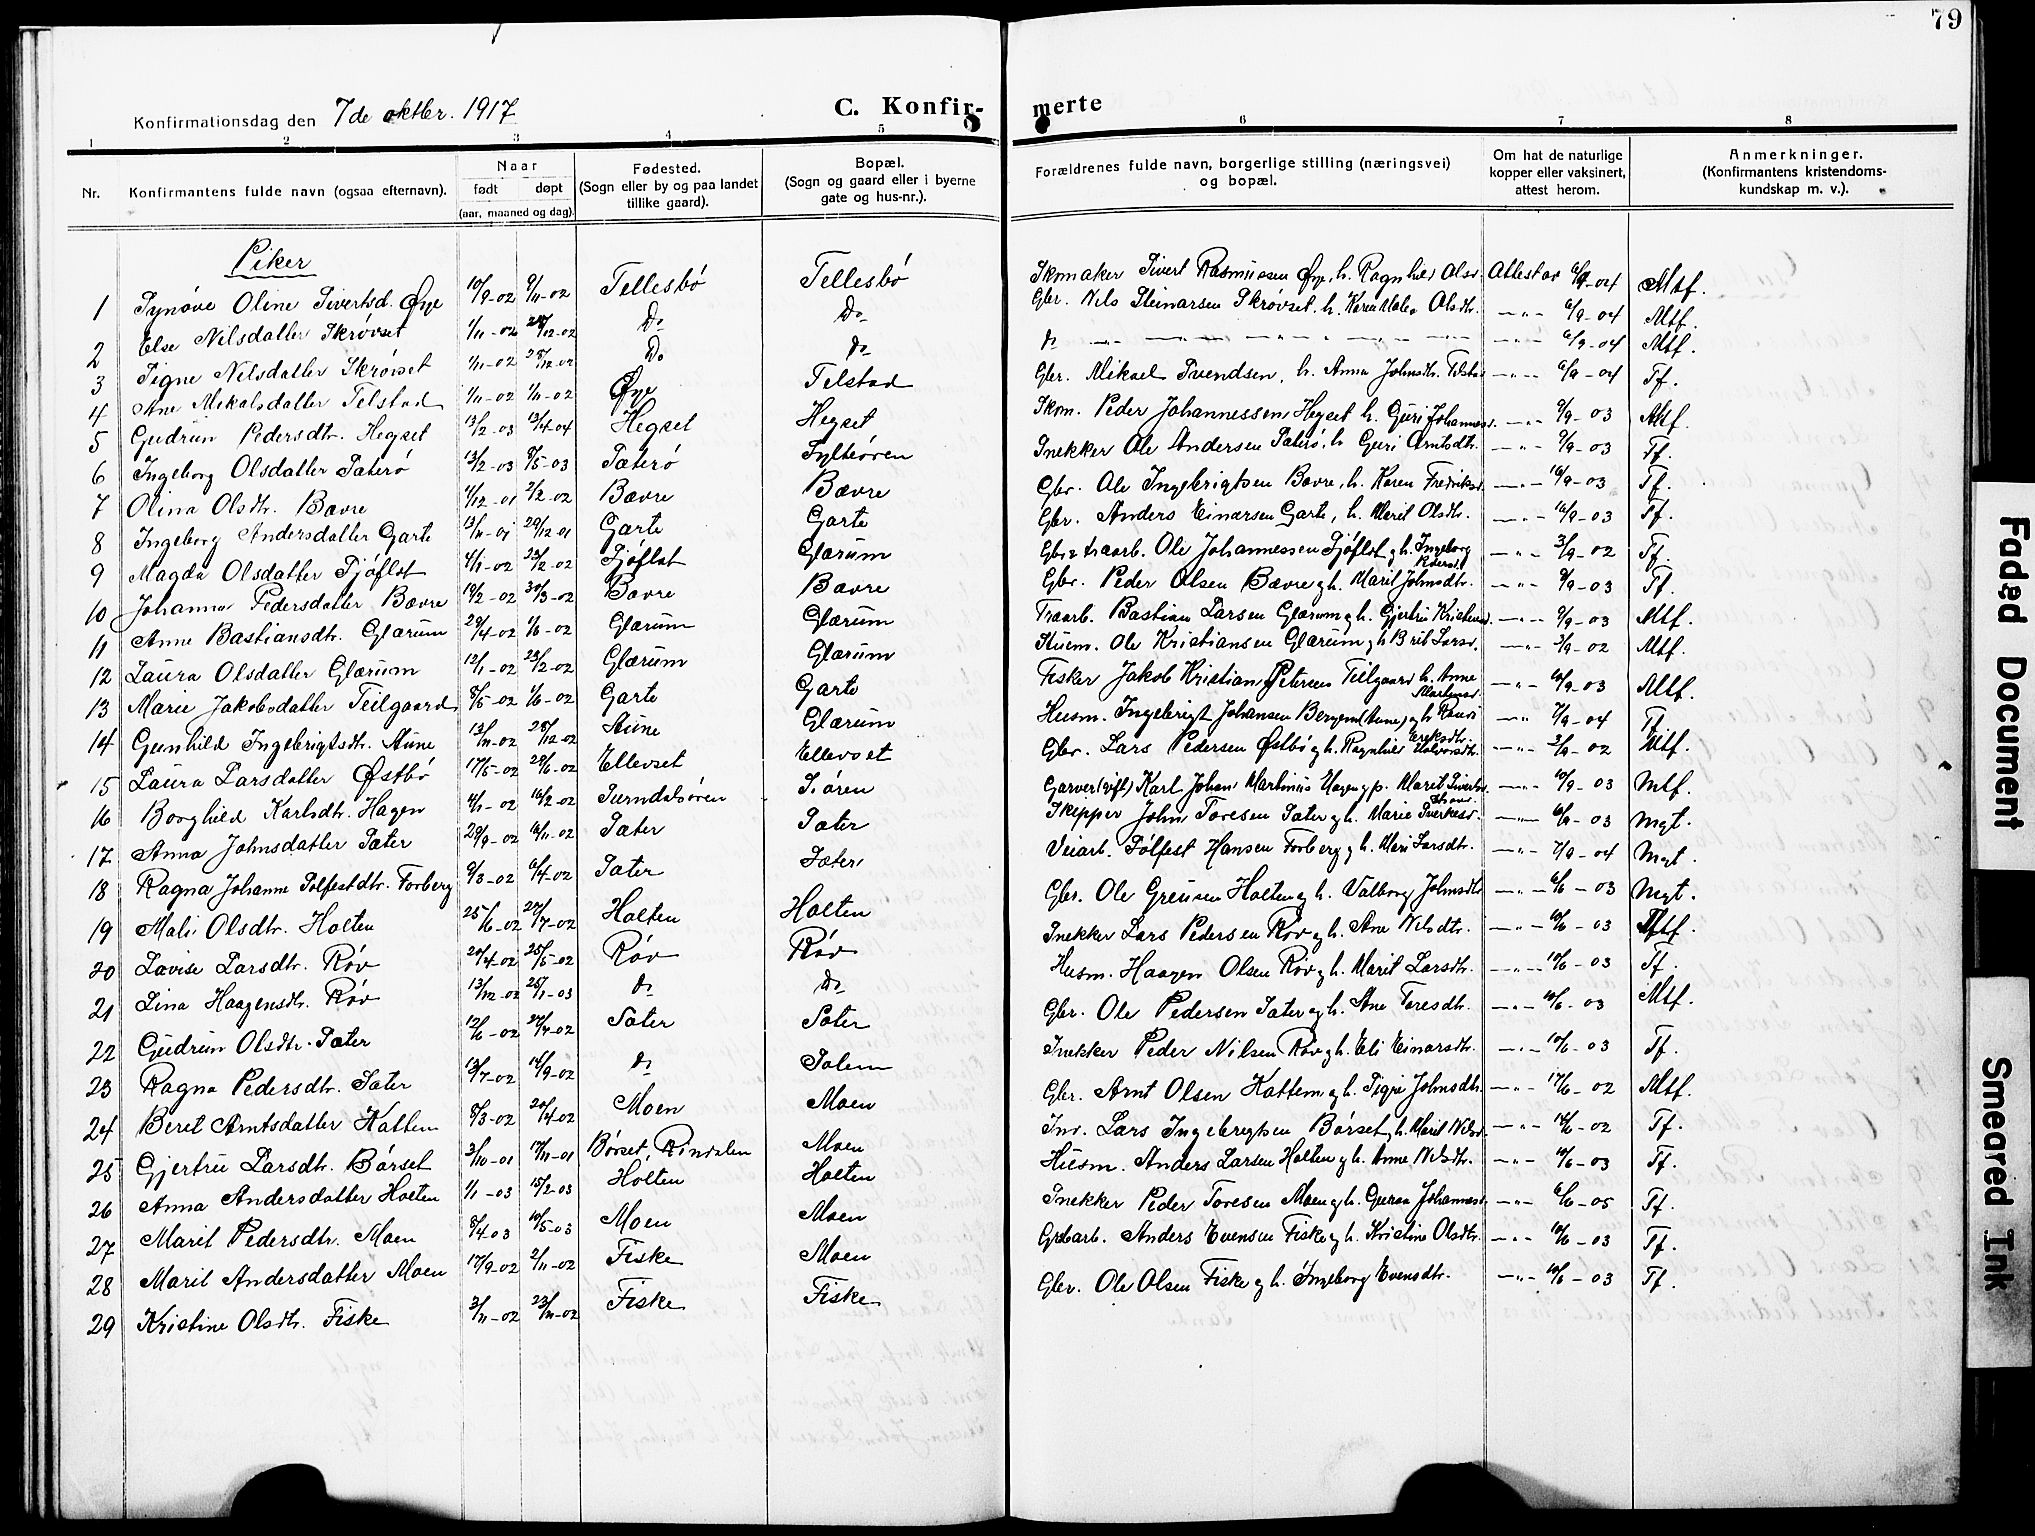 79
Konfirmationsdag den 7de oktbr. 1917
C. Konfir-
merte
1 2 3 4 5 6 7 8
Nr. Konfirmantens fulde navn (ogsaa efternavn). Naar født døpt (aar, maaned og dag). Fødested. (Sogn eller by og paa landet tillike gaard). Bopæl. (Sogn og gaard eller i byerne gate og hus-nr.). Forældrenes fulde navn, borgerlige stilling (næringsvei) og bopæl. Om hat de naturlige kopper eller vaksinert, attest herom. Anmerkninger. (Konfirmantens kristendoms-kundskap m. v.).
Piker
1 Synøve Oline Sivertsd. Øye 10/9-02 9/11-02 Tellesbø Tellesbø Skomaker Sivert Rasmussen Øye, h. Ragnhild Olsd. Attest av 6/9-04 Mtf.
2 Else Nilsdatter Skrøvset 1/11-02 28/12-02 Do Do Gbr. Nils Steinarsen Skrøvset. h. Karen Olsdtr. -"- 6/9-04 Mtf.
3 Signe Nilsdatter Skrøvset 1/11-02 28/12-02 Do Do do -"- 6/9-04 Mtf.
4 Ane Mikalsdatter Telstad 1/11-02 Øye Telstad Gbr. Mikael Svendsen, h. Anna Johnsdtr. Telstad -"- 6/9-04 Tf.
5 Gudrun Pedersdtr. Hegset 13/2-03 13/4-04 Hegset Hegset Skom. Peder Johannessen Hegset h. Guri Johannesd. -"- 9/9-03 Mtf.
6 Ingeborg Olsdatter Sæterø 13/2-03 8/5-03 Sæterø Sylteøren Snekker Ole Andersen Sæterø, h. Guri Arntsdtr. -"- 9/9-03 Tf.
7 Olina Olsdtr. Bævre 4/12-01 2/2-02 Bævre Bævre Gbr. Ole Ingebrigtsen Bævre, h. Karen Fredriksd. -"- 10/9-03 Tf.
8 Ingeborg Andersdatter Garte 13/11-01 29/12-01 Garte Garte Gbr. Anders Einarsen Garte, h. Marit Olsdtr. -"- 10/9-03 Tf.
9 Magda Olsdatter Sjøflot 4/1-02 23/2-02 Sjøflot Glærum Gbr & traarb. Ole Johannessen Sjøflot g h. Ingeborg -"- 3/9-02 Tf.
10 Johanna Pedersdatter Bævre 10/2-02 30/3-02 Bævre Bævre Gbr. Peder Olsen Bævre g h. Marit Johnsdtr. -"- 9/9-03 Tf.
11 Anne Bastiansdtr. Glærum 29/4-02 1/6-02 Glærum Glærum Traarb. Bastian Larsen Glærum g h. Gjertru -"- 9/9-03 Mtf.
12 Laura Olsdatter Glærum 12/1-02 23/2-02 Glærum Glærum Ole Kristiansen Glærum g h Brit Larsd. -"- 3/9-02 Mtf.
13 Marie Jakobsdatter Teilgaard 8/5-02 1/6-02 Garte Garte Fisker Jakob Kristian Petersen Teilgaard h. Anne Martinsd. -"- 10/9-03 Mtf.
14 Gunhild Ingebrigtsdtr. Stüne 13/11-02 28/12-02 Stüne Glærum Husm. Ingebrigt Johansen g h. Randi Eriksdtr. -"- 7/9-04 Tf
15 Laura Larsdatter Østbø 17/5-02 29/6-02 Ellevset Ellevset Gbr. Lars Pedersen Østbø g h. Ragnhild Halvorsdtr. -"- 3/9-02 Mtf.
16 Borghild Karlsdtr. Hagen 4/1-02 16/2-02 Surndalsøren Siøren Garver (gift) Karl Johan Martinius Hagen g p. Marit Sivertsd. -"- 10/9-03 Mtf.
17 Anna Johnsdatter Sæter 29/9-02 16/11-02 Sæter Sæter Skipper John Toresen Sæter g h. Marie -"- 6/9-03 Mgt.
18 Ragna Johanne Solfestdtr. Forberg 9/3-02 6/4-02 Sæter Sæter Veiarb. Solfest Hansen Forberg g h. Mari Larsdtr. -"- 7/9-04 Mgt.
19 Mali Olsdtr. Holten 25/6-02 27/7-02 Holten Holten Gbr. Ole Holten g h. Valborg Johnsdtr -"- 6/6-03 Mgt.
20 Lovise Larsdtr. Røv 20/4-02 25/5-02 Røv Røv Snekker Lars Pedersen Røv g h. Ane Nilsdtr. -"- 10/6-03 Mtf.
21 Lina Haagensdtr. Røv 13/12-02 25/1-03 do do Husm. Haagen Olsen Røv g h. Marit Larsdtr. -"- 10/6-03 Tf.
22 Gudrun Olsdtr. Sæter 12/6-02 27/7-02 Sæter Sæter Gbr. Ole Pedersen Sæter g h. Ane Toresdtr. -"- 10/6-03 Mtf.
23 Ragna Pedersdtr. Sæter 13/7-02 14/9-02 do Solem Snekker Peder Nilsen Røv g h. Eli Einarsdtr. -"- 10/6-03 Tf.
24 Beret Arntsdatter Kattem 8/3-02 20/4-02 Moen Moen Gbr. Arnt Olsen Kattem g h. Sigri Johnsdtr. -"- 17/6-02 Mtf.
25 Gjertru Larsdtr. Børset 3/10-01 17/11-01 Børset, Rindalen Moen Inv. Lars Ingebrigtsen Børset g h. Marit Nilsd. -"- 14/6-02 Tf.
26 Anna Andersdatter Holten 1/1-03 15/2-03 Holten Holten Husm. Anders Larsen Holten g h. Anne Nilsdtr. -"- 10/6-03 Tf.
27 Marit Pedersdtr. Moen 8/4-03 10/5-03 Moen Moen Snekker Peder Toresen Moen g h. Guroa Johannesd. -"- 6/6-05 Tf.
28 Marit Andersdatter Moen 17/9-02 2/11-02 Fiske Moen Anders Evensen Fiske g h. Kristine Olsdtr. -"- 10/6-03 Tf.
29 Kristine Olsdtr. Fiske 3/11-02 23/11-02 Fiske Fiske Gbr. Ole Olsen Fiske g h. Ingeborg Evensdtr. -"- 10/6-03 Tf.
Faded Document
Smeared Ink